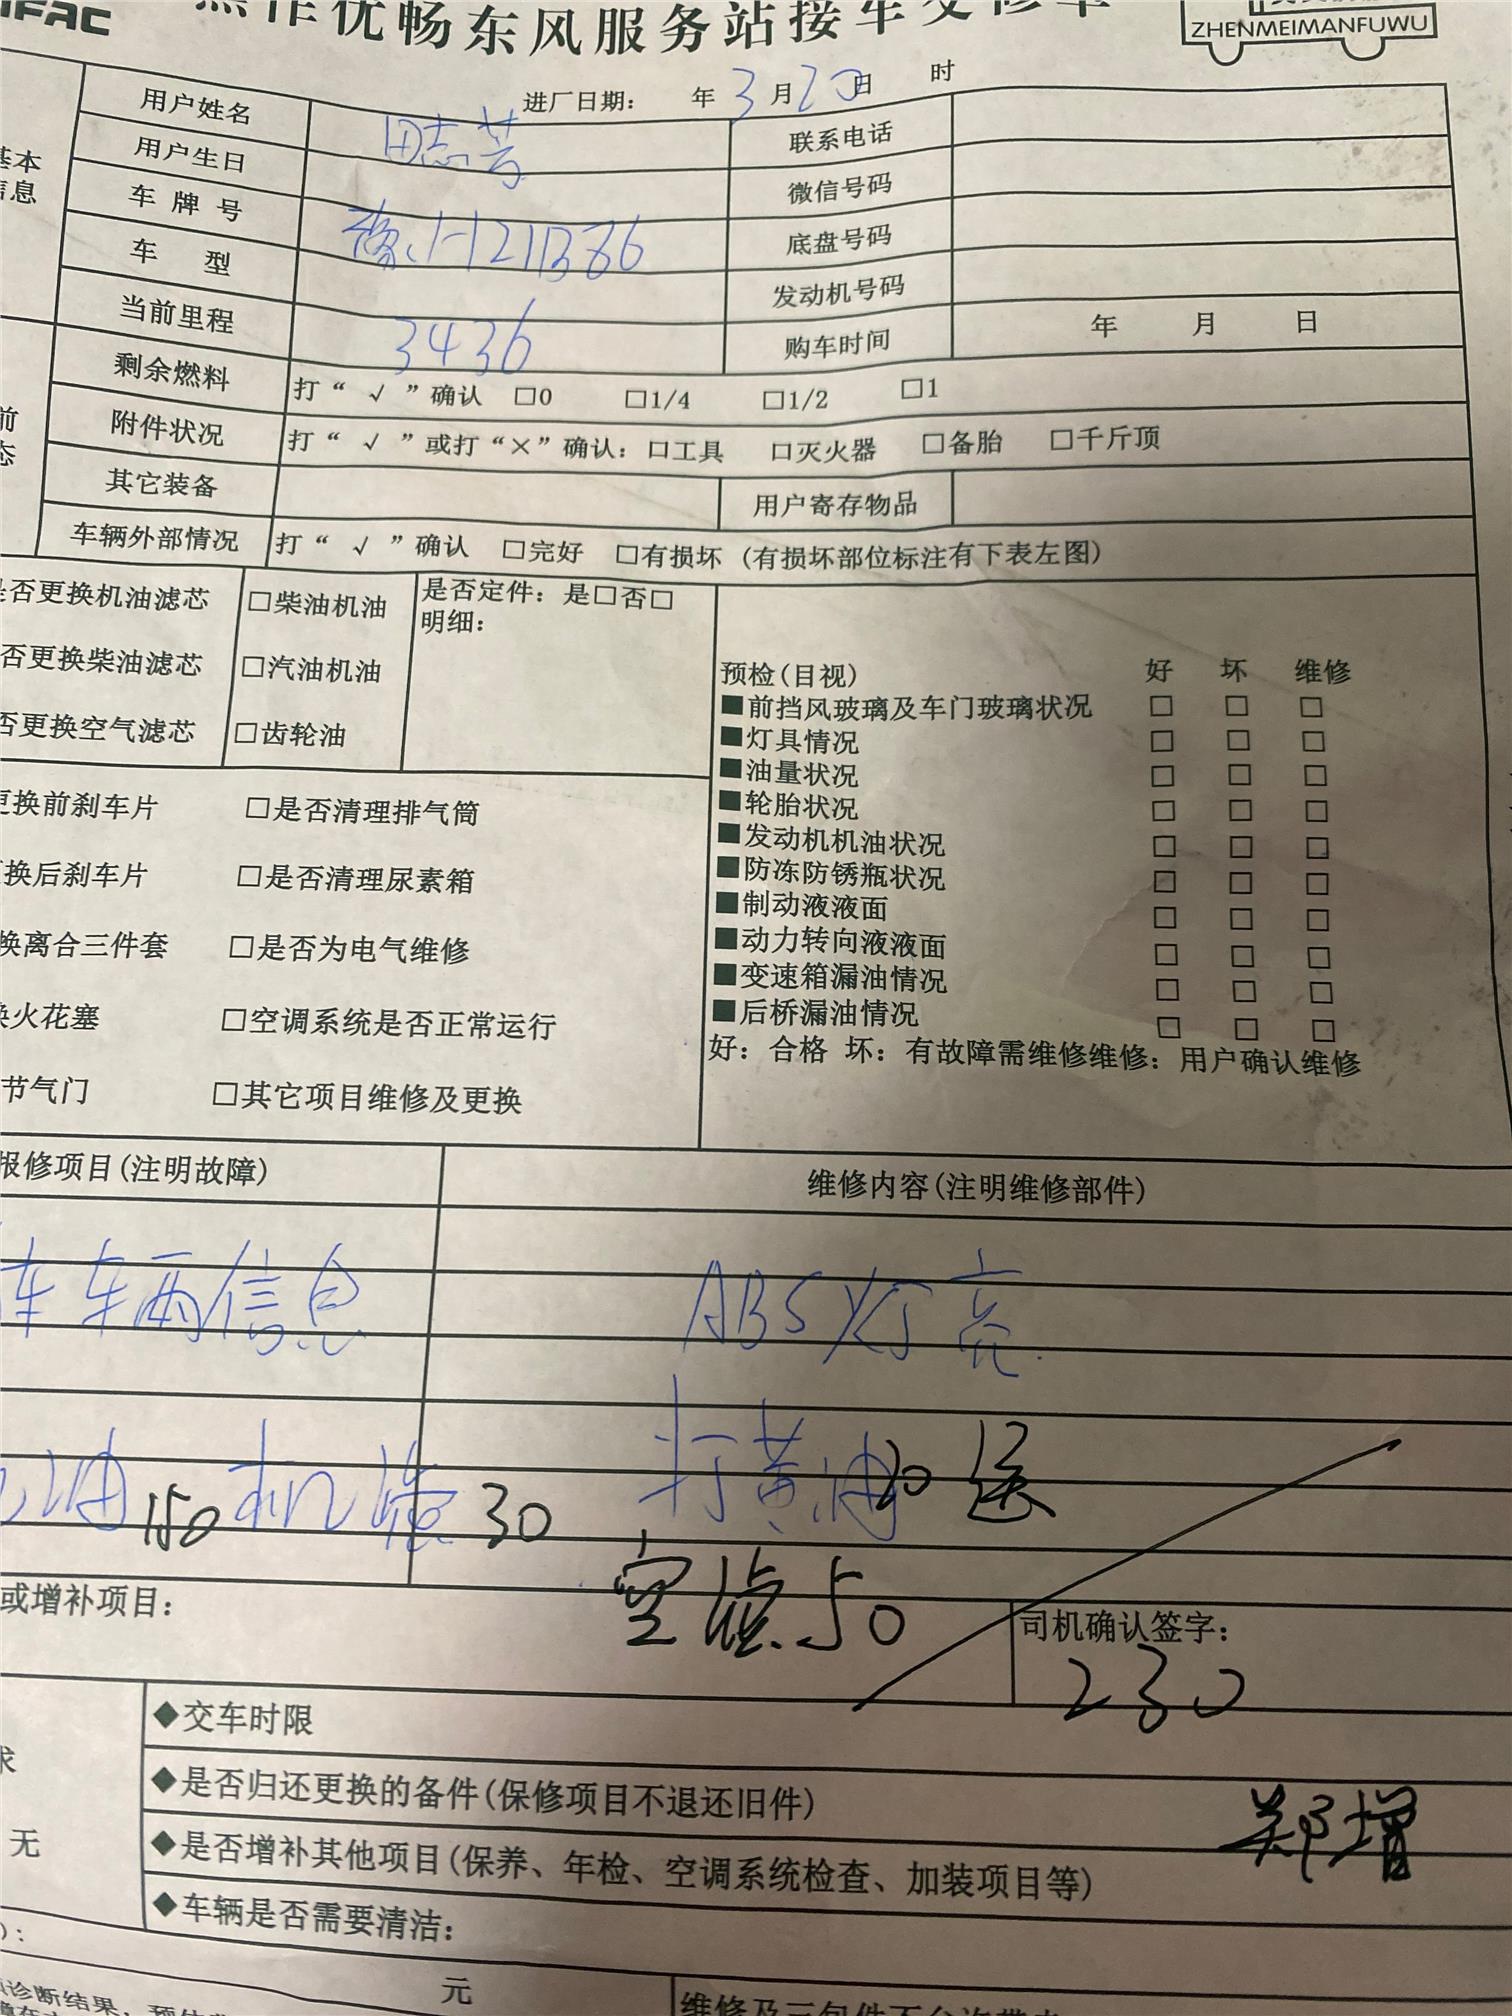 焦作优畅东风服务站接车交修单
ZHENMEIMANFUWU
进厂日期: 年 3 月 20 日 时
用户姓名 田志芳 联系电话
用户生日 微信号码
车牌号 豫H21B86 底盘号码
车 型 发动机号码
当前里程 3436 购车时间 年 月 日
剩余燃料 打“√”确认 □0 □1/4 □1/2 □1
附件状况 打“√”或打“×”确认: □工具 □灭火器 □备胎 □千斤顶
其它装备 用户寄存物品
车辆外部情况 打“√”确认 □完好 □有损坏 (有损坏部位标注有下表左图)
否更换机油滤芯 □柴油机油 是否定件: 是□否□
明细:
否更换柴油滤芯 □汽油机油
否更换空气滤芯 □齿轮油
预检(目视) 好 坏 维修
■前挡风玻璃及车门玻璃状况 □ □ □
■灯具情况 □ □ □
■油量状况 □ □ □
■轮胎状况 □ □ □
■发动机机油状况 □ □ □
■防冻防锈瓶状况 □ □ □
■制动液液面 □ □ □
■动力转向液液面 □ □ □
■变速箱漏油情况 □ □ □
■后桥漏油情况 □ □ □
好: 合格 坏: 有故障需维修维修: 用户确认维修
更换前刹车片 □是否清理排气筒
换后刹车片 □是否清理尿素箱
换离合三件套 □是否为电气维修
火花塞 □空调系统是否正常运行
节气门 □其它项目维修及更换
报修项目(注明故障) 维修内容(注明维修部件)
车车辆信息 ABS灯亮
油 150 机滤 30 打黄油 20 送
空滤 50
或增补项目: 司机确认签字:
230
◆交车时限
◆是否归还更换的备件(保修项目不退还旧件)
◆是否增补其他项目(保养、年检、空调系统检查、加装项目等)
郑增
无
◆车辆是否需要清洁:
元
诊断结果,